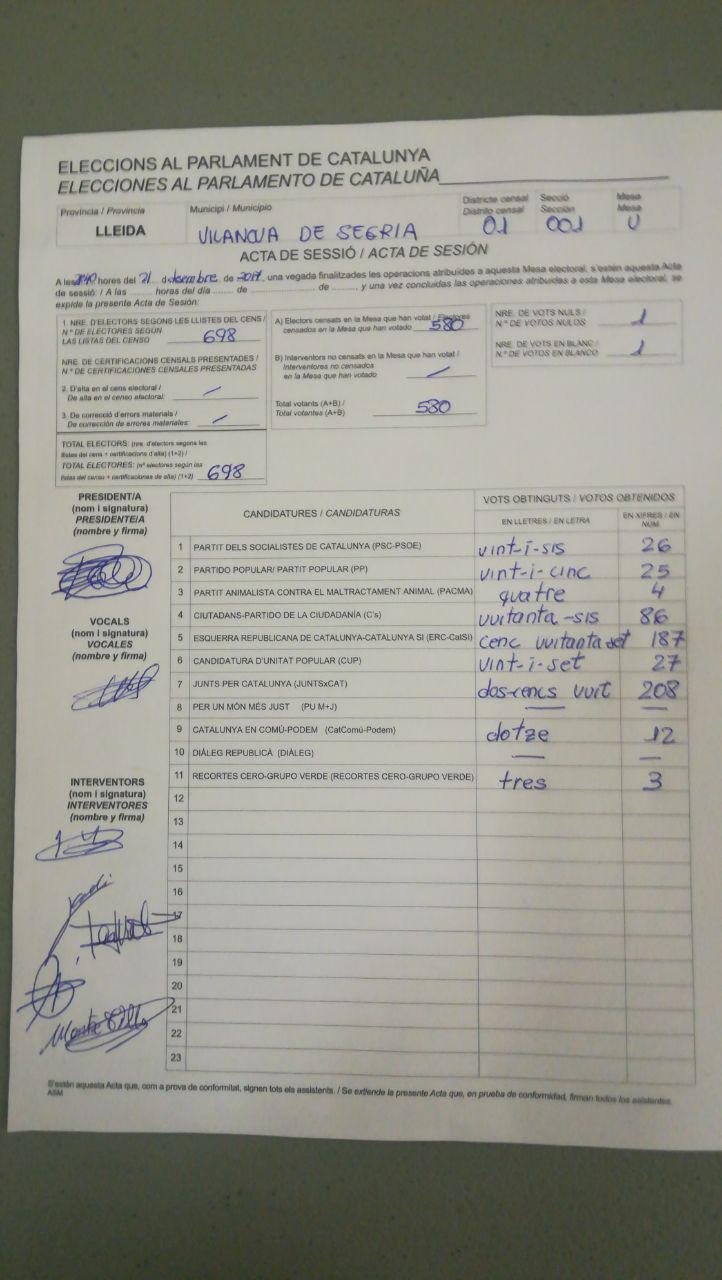 ELECCIONS AL PARLAMENT DE CATALUNYA
ELECCIONES AL PARLAMENTO DE CATALUÑA
Província / Provincia
LLEIDA
Municipi / Municipio
VILANOVA DE SEGRIA
Districte censal
Distrito censal
01
Secció
Sección
001
Mesa
Mesa
U
ACTA DE SESSIÓ / ACTA DE SESIÓN
A les hores del 21 desembre de 2017, una vegada finalitzades les operacions atribuïdes a aquesta Mesa electoral, s'estén aquesta Acta
de sessió: / A las ........ horas del día ........ de ........................ de ........ y una vez concluidas las operaciones atribuidas a esta Mesa electoral, se
expide la presente Acta de Sesión:
1. NRE. D'ELECTORS SEGONS LES LLISTES DEL CENS /
N.º DE ELECTORES SEGÚN
LAS LISTAS DEL CENSO 698
NRE. DE CERTIFICACIONS CENSALS PRESENTADES /
N.º DE CERTIFICACIONES CENSALES PRESENTADAS
2. D'alta en el cens electoral /
De alta en el censo electoral: —
3. De correcció d'errors materials /
De corrección de errores materiales: —
TOTAL ELECTORS: (nre. d'electors segons les
llistes del cens + certificacions d'alta) (1+2) /
TOTAL ELECTORES: (nº electores según las
listas del censo + certificaciones de alta) (1+2) 698
A) Electors censats en la Mesa que han votat / Electores
censados en la Mesa que han votado 580
B) Interventors no censats en la Mesa que han votat /
Interventores no censados
en la Mesa que han votado —
Total votants (A+B) /
Total votantes (A+B) 580
NRE. DE VOTS NULS /
N.º DE VOTOS NULOS 1
NRE. DE VOTS EN BLANC /
N.º DE VOTOS EN BLANCO 1
PRESIDENT/A
(nom i signatura)
PRESIDENTE/A
(nombre y firma)
VOCALS
(nom i signatura)
VOCALES
(nombre y firma)
INTERVENTORS
(nom i signatura)
INTERVENTORES
(nombre y firma)
CANDIDATURES / CANDIDATURAS
VOTS OBTINGUTS / VOTOS OBTENIDOS
EN LLETRES / EN LETRA
EN XIFRES / EN NÚM
1 PARTIT DELS SOCIALISTES DE CATALUNYA (PSC-PSOE) vint-i-sis 26
2 PARTIDO POPULAR/ PARTIT POPULAR (PP) vint-i-cinc 25
3 PARTIT ANIMALISTA CONTRA EL MALTRACTAMENT ANIMAL (PACMA) quatre 4
4 CIUTADANS-PARTIDO DE LA CIUDADANÍA (C's) vuitanta-sis 86
5 ESQUERRA REPUBLICANA DE CATALUNYA-CATALUNYA SÍ (ERC-CatSí) cenc vuitanta set 187
6 CANDIDATURA D'UNITAT POPULAR (CUP) vint-i-set 27
7 JUNTS PER CATALUNYA (JUNTSxCAT) dos-cencs vuit 208
8 PER UN MÓN MÉS JUST (PU M+J) — —
9 CATALUNYA EN COMÚ-PODEM (CatComú-Podem) dotze 12
10 DIÀLEG REPUBLICÀ (DIÀLEG) — —
11 RECORTES CERO-GRUPO VERDE (RECORTES CERO-GRUPO VERDE) tres 3
12
13
14
15
16
17
18
19
20
21
22
23
S'estén aquesta Acta que, com a prova de conformitat, signen tots els assistents. / Se extiende la presente Acta que, en prueba de conformidad, firman todos los asistentes.
ASM